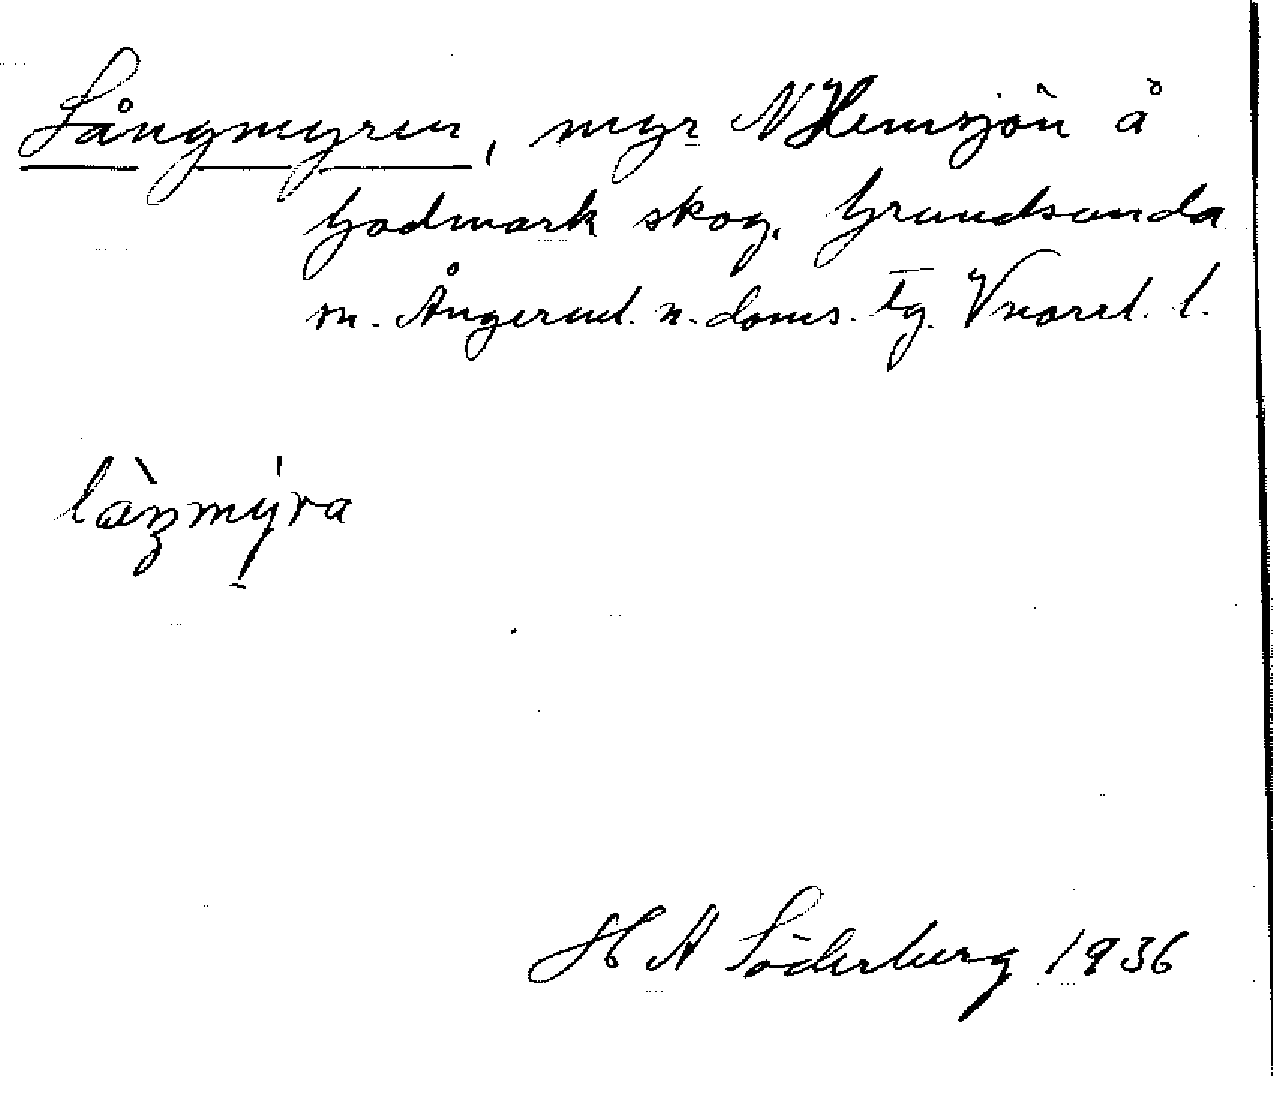 Långmyren, myr N Hemsjön å
Godmark skog, Grundsunda
sn. Ångerml. n. doms. tg. Vnorrl. l.
làŋmy̍ra
H A Söderberg 1936